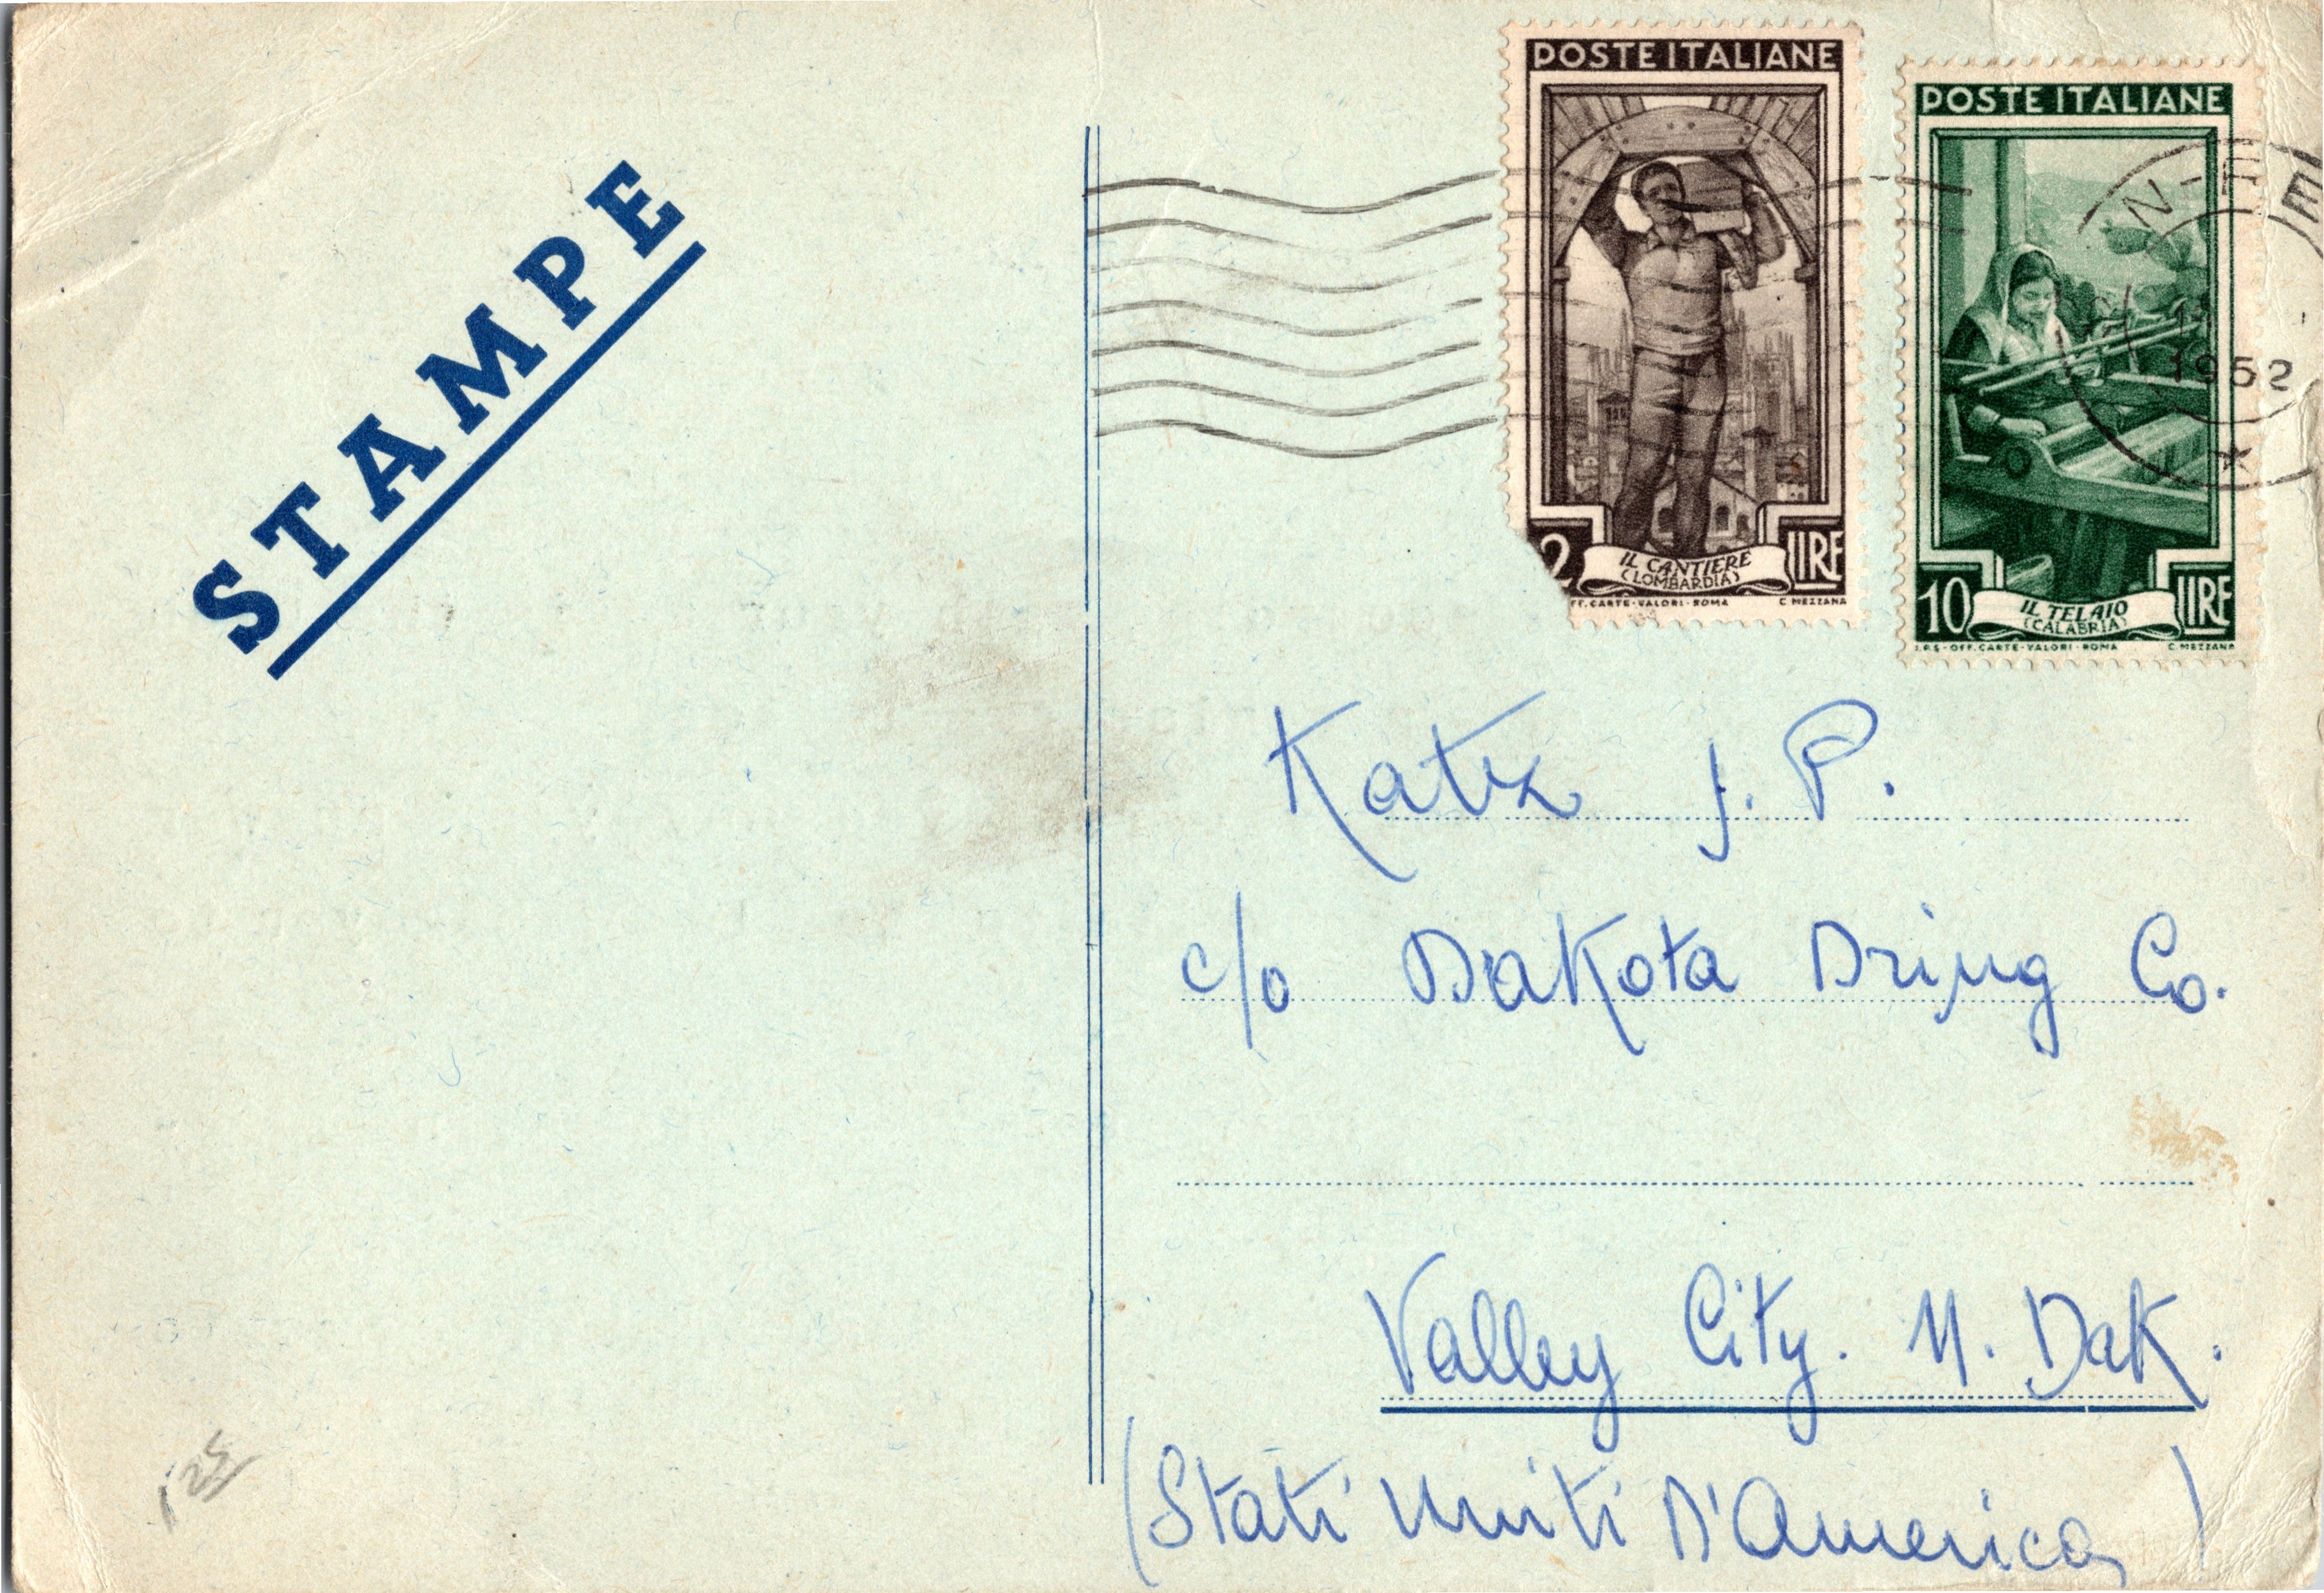 STAMPE
POSTE ITALIANE
2 LIRE
IL CANTIERE
(LOMBARDIA)
OFF. CARTE-VALORI-ROMA C. MEZZANA
POSTE ITALIANE
10 LIRE
IL TELAIO
(CALABRIA)
I.P.S-OFF. CARTE-VALORI-ROMA C. MEZZANA
1952
Katz J. P.
c/o Dakota Dring Co.
Valley City. N. Dak.
(Stati Uniti D'America)
125